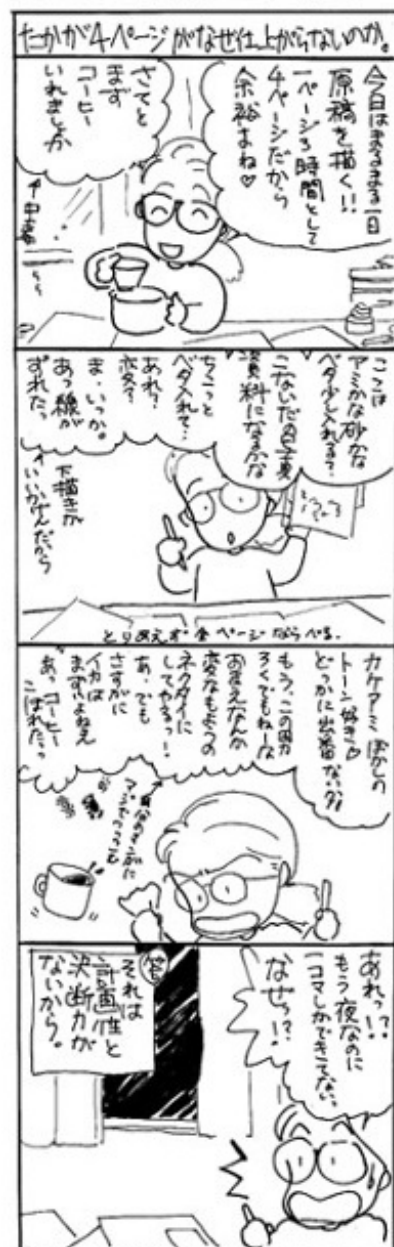 たかが4ページがなぜ仕上がらないのか。
今日はまるまる一日
原稿を描く!!
一ページ3時間として
4ページだから
余裕よね♡
さてと
まず
コーヒー
いれましょか
ここは
アミかな砂かな
ベタ少し入れる?
こないだの写真
資料になるかな
ちょっと
ベタ入れて…
あれ?
変?
ま、いっか。
あっ線が
ずれたっ
下描きが
いいかげんだから
とりあえず全ページならべる。
カケアミぼかしの
トーン好き♡
どっかに出番ない?
もう、この男
ろくでもねーな
おまえなんか
変なもようの
ネクタイに
してやるっ!
あ、でも
さすがに
イカは
まずいよねえ
あっコーヒー
こぼれたっっ
自分のマンガに
マジでつっこむ
あれっ?!
もう夜なのに
一コマしかできてない
なぜっ?!
答
それは
計画性と
決断力が
ないから。